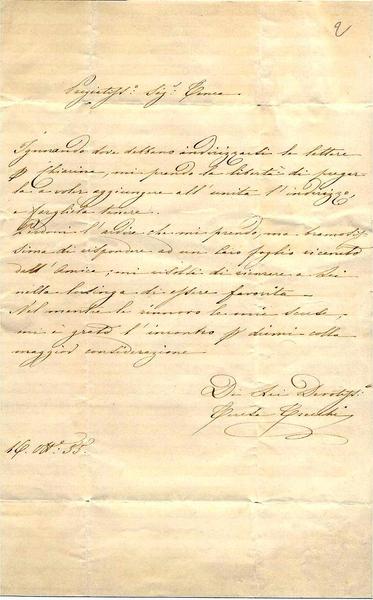 2
Pregiatiss.º Sig.r
Ignorando dove debbano indirizzarsi le lettere
p Chiarina, mi prendo la libertà di pregar
la a voler aggiungere all'unita l'indirizzo,
e fargliela tenere.
Perdoni l'ardire che mi prendo, ma bramosis
sima di rispondere ad un caro foglio ricevuto
dall'Amica; mi vi di a Lei
nella lusinga di essere favorita
Nel mentre le rinnovo le mie scuse,
mi è grato l'incontro p dirmi colla
maggior considerazione
Di Lei Devotiss.ª
16. Ott.e 55.